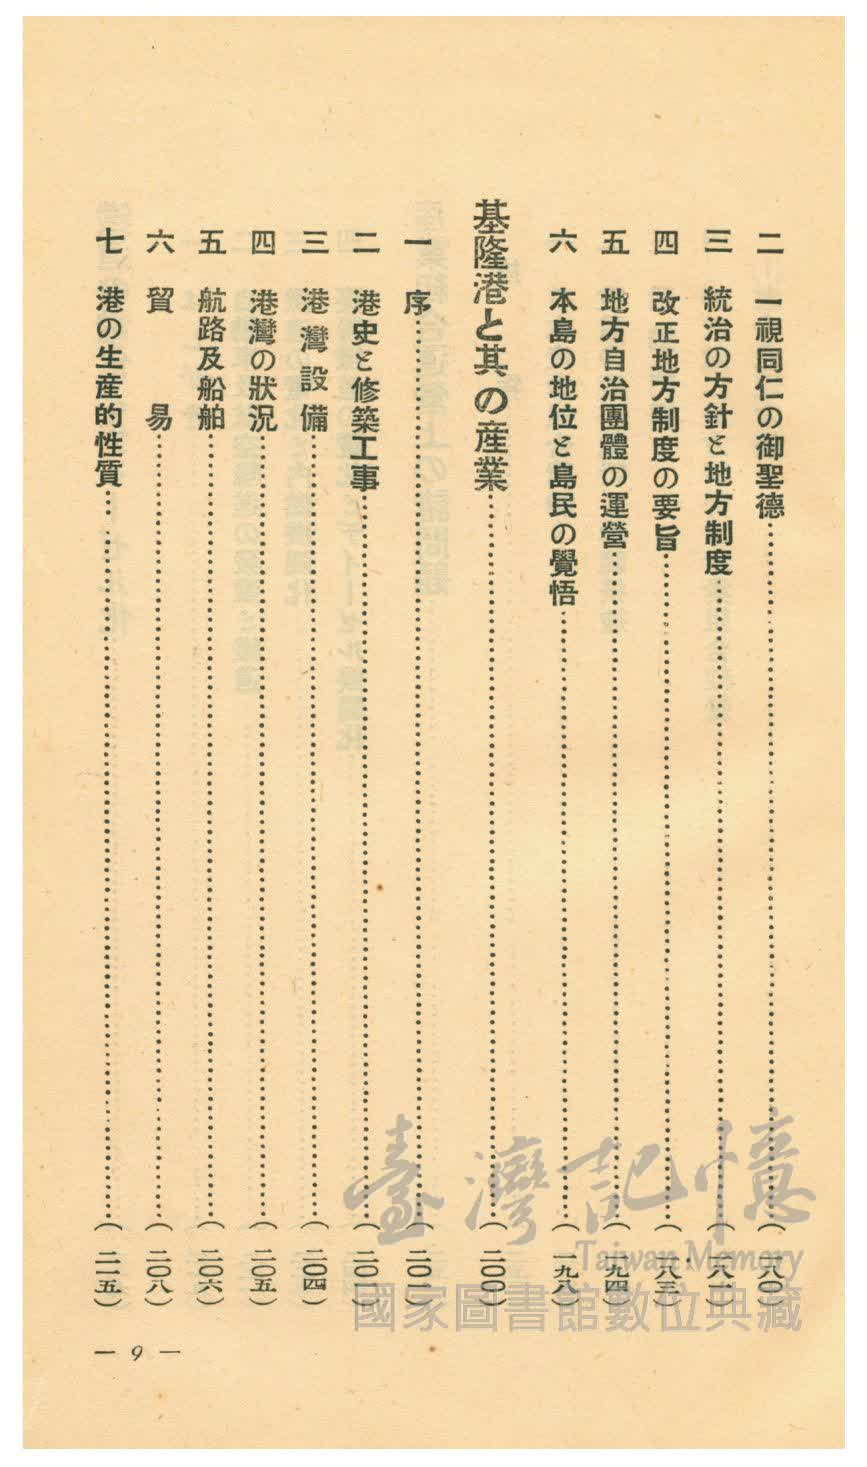 二 一視同仁の御聖德……(一八〇)
三 統治の方針と地方制度……(一八一)
四 改正地方制度の要旨……(一八三)
五 地方自治團體の運營……(一九四)
六 本島の地位と島民の覺悟……(一九八)
基隆港と其の産業……(二〇〇)
一 序……(二〇一)
二 港史と修築工事……(二〇一)
三 港灣設備……(二〇四)
四 港灣の狀況……(二〇五)
五 航路及船舶……(二〇六)
六 貿易……(二〇八)
七 港の生産的性質……(二一五)
— 9 —
臺灣記憶
Taiwan Memory
國家圖書館數位典藏